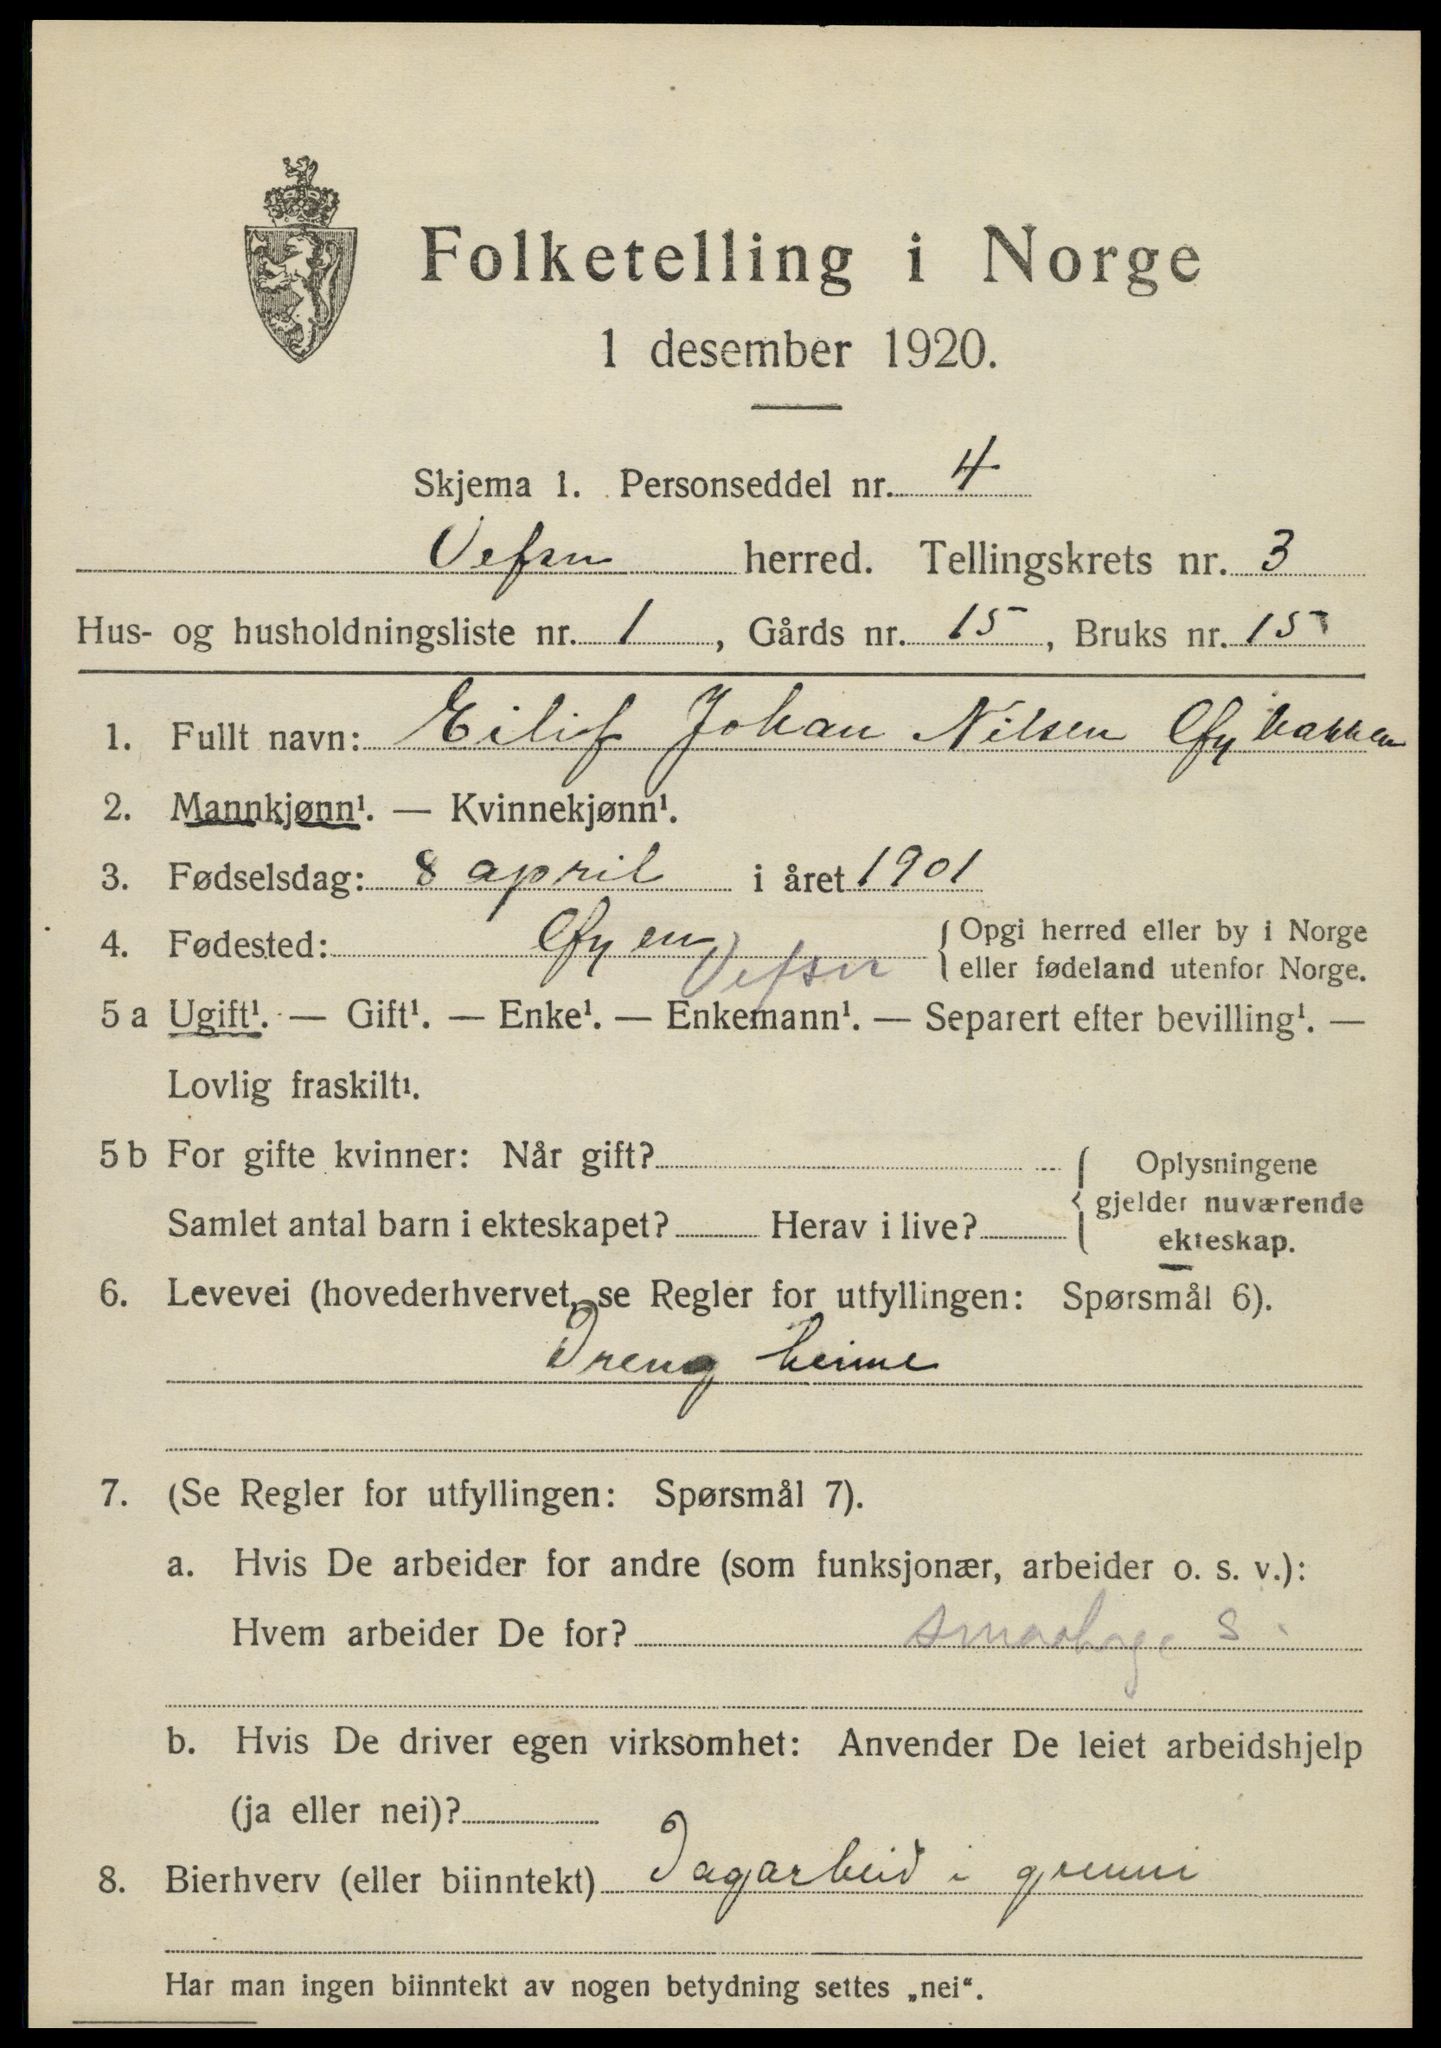 Folketelling i Norge
1 desember 1920.
Skjema 1. Personseddel nr. 4
Vefsn herred. Tellingskrets nr. 3
Hus- og husholdningsliste nr. 1, Gårds nr. 15, Bruks nr. 15
1. Fullt navn: Eilif Johan Nilsen Øybakken
2. Mannkjønn¹. — Kvinnekjønn¹.
3. Fødselsdag: 8 april i året 1901
4. Fødested: Øyen Vefsn { Opgi herred eller by i Norge
eller fødeland utenfor Norge.
5 a Ugift¹. — Gift¹. — Enke¹. — Enkemann¹. — Separert efter bevilling¹. —
Lovlig fraskilt¹.
5 b For gifte kvinner: Når gift? { Oplysningene
gjelder nuværende
Samlet antal barn i ekteskapet? Herav i live?
ekteskap.
6. Levevei (hovederhvervet, se Regler for utfyllingen: Spørsmål 6).
Dreng heime
7. (Se Regler for utfyllingen: Spørsmål 7).
a. Hvis De arbeider for andre (som funksjonær, arbeider o. s. v.):
Hvem arbeider De for? s.
b. Hvis De driver egen virksomhet: Anvender De leiet arbeidshjelp
(ja eller nei)?
8. Bierhverv (eller biinntekt) Dagarbeid i grenni
Har man ingen biinntekt av nogen betydning settes „nei“.